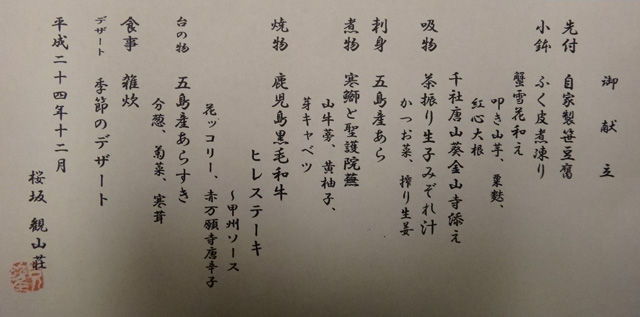 御献立
先付 自家製笹豆腐
小鉢 ふく皮煮凍り
蟹雪花和え
叩き山芋、粟麩、
紅心大根
千社唐山葵金山寺添え
吸物 茶振り生子みぞれ汁
かつお菜、搾り生姜
刺身 五島産あら
煮物 寒鰤と聖護院蕪
山牛蒡、黄柚子、
芽キャベツ
焼物 鹿児島黒毛和牛
ヒレステーキ
~甲州ソース
花ッコリー、赤万願寺唐辛子
台の物 五島産あらすき
分葱、菊菜、寒茸
食事 雑炊
デザート 季節のデザート
平成二十四年十二月
桜坂 観山荘